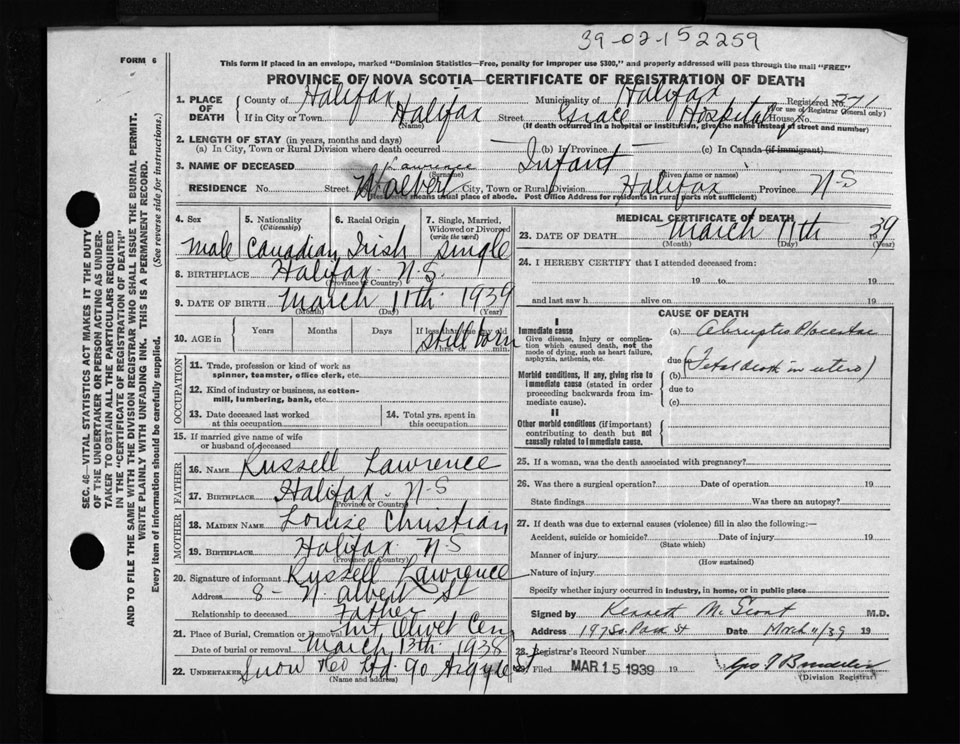 39-02-152259
FORM 6
This form if placed in an envelope, marked "Dominion Statistics—Free, penalty for improper use $300," and properly addressed will pass through the mail "FREE"
PROVINCE OF NOVA SCOTIA—CERTIFICATE OF REGISTRATION OF DEATH
1. PLACE OF DEATH
County of Halifax Municipality of Halifax Registered No. 371
(For use of Registrar General only)
If in City or Town Halifax Street Grace Hospital House No.
(Name) (If death occurred in a hospital or institution, give the name instead of street and number)
2. LENGTH OF STAY (in years, months and days)
(a) In City, Town or Rural Division where death occurred (b) In Province (c) In Canada (if immigrant)
3. NAME OF DECEASED Lawrence Infant
(Surname) (Given name or names)
RESIDENCE No. Street N Albert City, Town or Rural Division Halifax Province N S
(Residence means usual place of abode. Post Office Address for residents in rural parts not sufficient)
4. Sex 5. Nationality (Citizenship) 6. Racial Origin 7. Single, Married, Widowed or Divorced (write the word)
Male Canadian Irish Single
8. BIRTHPLACE Halifax N.S.
(Province or Country)
9. DATE OF BIRTH March 11th 1939
(Month) (Day) (Year)
10. AGE Years Months Days If less than one day old
hrs. or min.
Stillborn
OCCUPATION
11. Trade, profession or kind of work as spinner, teamster, office clerk, etc.
12. Kind of industry or business, as cotton-mill, lumbering, bank, etc.
13. Date deceased last worked at this occupation
14. Total yrs. spent in this occupation
15. If married give name of wife or husband of deceased
FATHER
16. NAME Russell Lawrence
17. BIRTHPLACE Halifax N-S
(Province or Country)
MOTHER
18. MAIDEN NAME Louise Christian
19. BIRTHPLACE Halifax N S
(Province or Country)
20. Signature of informant Russell Lawrence
Address 8- N. Albert St
Relationship to deceased Father
21. Place of Burial, Cremation or Removal Mt Olivet Cem
Date of burial or removal March 13th 1938
22. UNDERTAKER Snow & Co Ltd. 90 Argyle St
(Name and address)
MEDICAL CERTIFICATE OF DEATH
23. DATE OF DEATH March 11th 1939
(Month) (Day) (Year)
24. I HEREBY CERTIFY that I attended deceased from:
19 to 19
and last saw h alive on 19
CAUSE OF DEATH
I
Immediate cause
Give disease, injury or complication which caused death, not the mode of dying, such as heart failure, asphyxia, asthenia, etc.
(a) Abruptio Placentae
due to
Morbid conditions, if any, giving rise to immediate cause (stated in order proceeding backwards from immediate cause).
(b) (Fetal death in utero)
due to
(c)
II
Other morbid conditions (if important) contributing to death but not causally related to immediate cause.
25. If a woman, was the death associated with pregnancy?
26. Was there a surgical operation? Date of operation 19
State findings Was there an autopsy?
27. If death was due to external causes (violence) fill in also the following:—
Accident, suicide or homicide? Date of injury 19
(State which)
Manner of injury
(How sustained)
Nature of injury
Specify whether injury occurred in industry, in home, or in public place
Signed by Kenneth M Grant M.D.
Address 197 So. Park St Date March 11/39 19
28. Registrar's Record Number
29. Filed MAR 15 1939 19
(Division Registrar)
SEC. 46—VITAL STATISTICS ACT MAKES IT THE DUTY
OF THE UNDERTAKER OR PERSON ACTING AS UNDER-
TAKER TO OBTAIN ALL THE PARTICULARS REQUIRED
IN THE "CERTIFICATE OF REGISTRATION OF DEATH"
AND TO FILE THE SAME WITH THE DIVISION REGISTRAR WHO SHALL ISSUE THE BURIAL PERMIT.
WRITE PLAINLY WITH UNFADING INK. THIS IS A PERMANENT RECORD.
Every item of information should be carefully supplied. (See reverse side for instructions.)